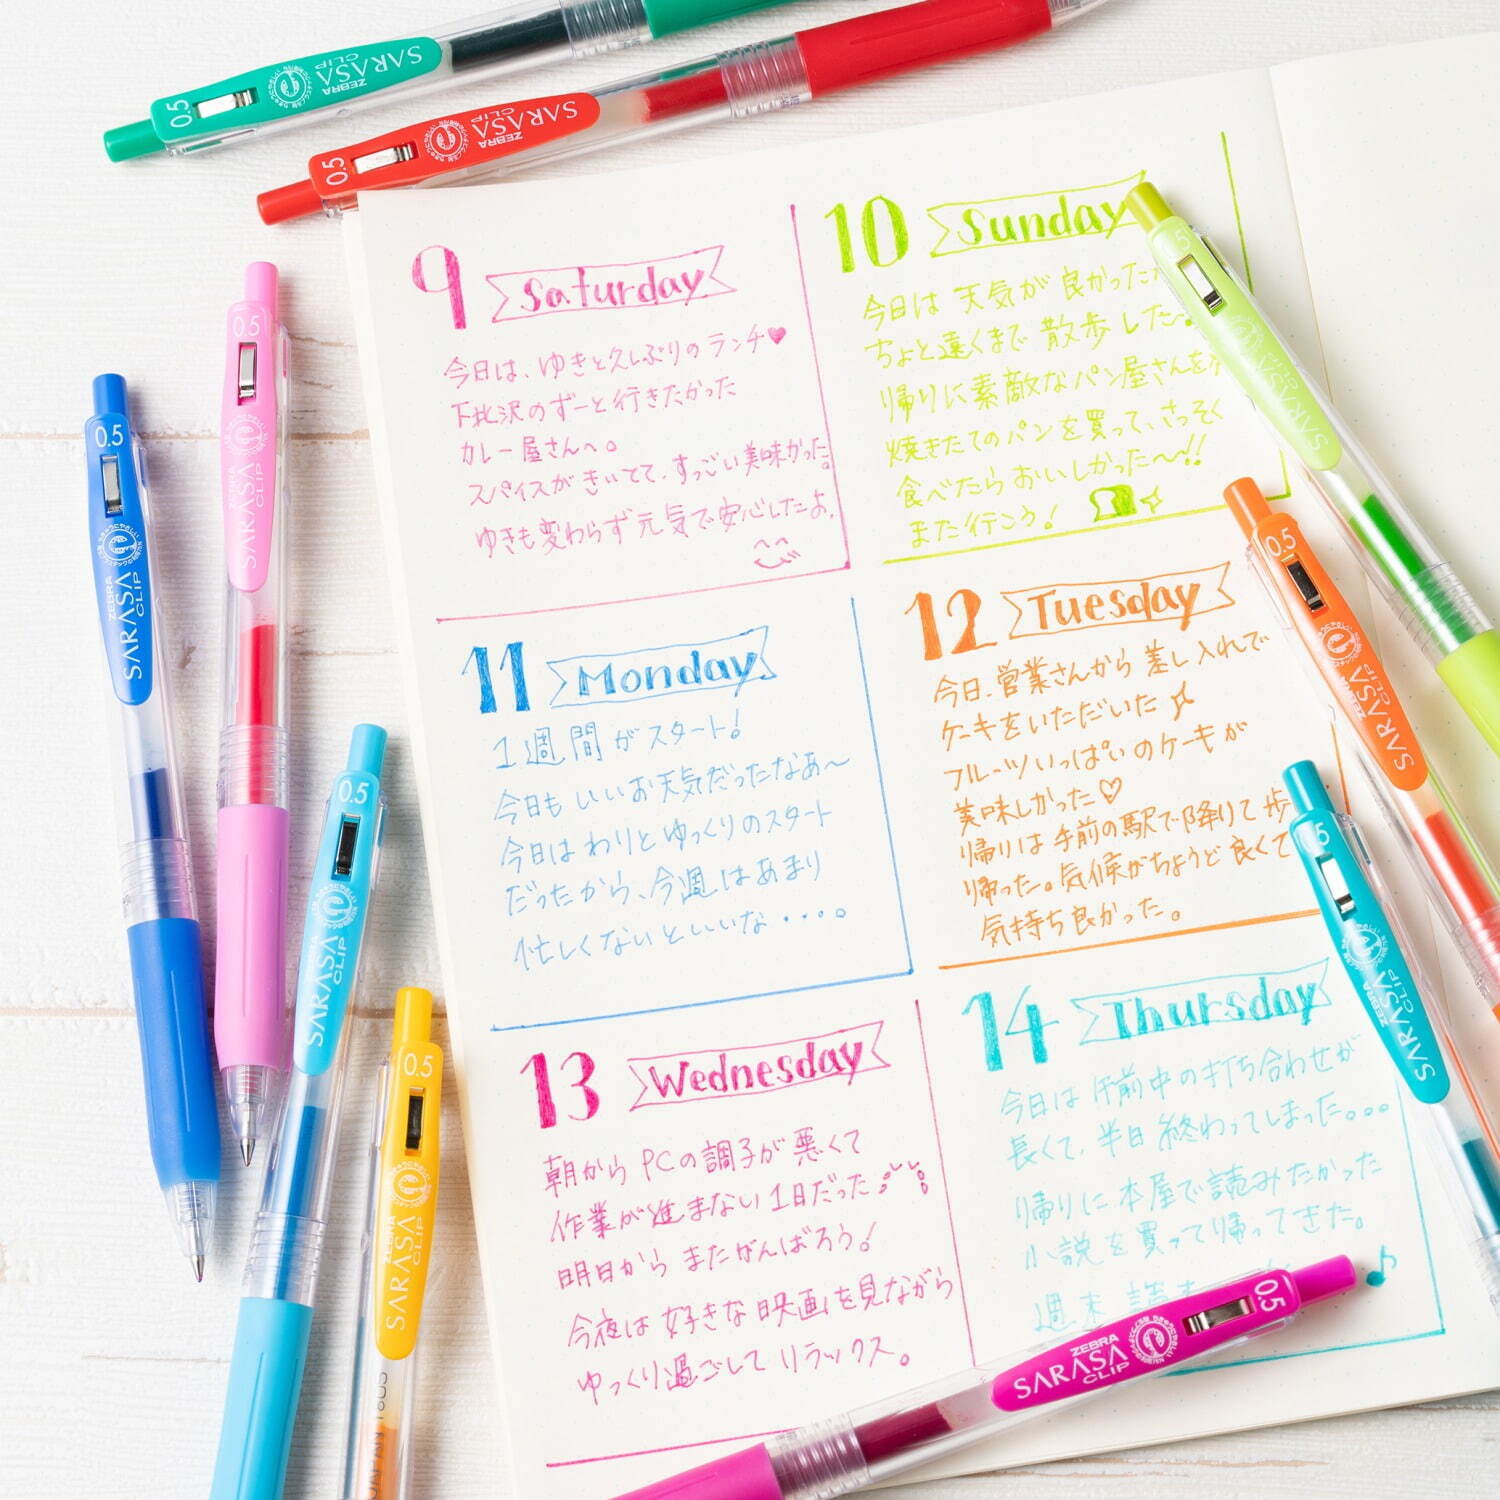 0.5 ZEBRA SARASA CLIP
0.5 ZEBRA SARASA CLIP
9 Saturday
今日は、ゆきと久しぶりのランチ♥
下北沢のずーと行きたかった
カレー屋さんへ。
スパイスがきいてて、すっごい美味かった。
ゆきも変わらず元気で安心したよ。
10 Sunday
今日は 天気が 良かった
ちょと遠くまで 散歩 した〜。
帰りに素敵なパン屋さんを
焼きたてのパンを買って、さっそく
食べたらおいしかった〜!!
また行こう!
11 Monday
1週間がスタート!
今日もいいお天気だったなあ〜
今日はわりとゆっくりのスタート
だったから、今週はあまり
忙しくないといいな・・・・。
12 Tuesday
今日、営業さんから差し入れで
ケーキをいただいた
フルーツいっぱいのケーキが
美味しかった♡
帰りは手前の駅で降りて歩
帰った。気候がちょうど良くて
気持ち良かった。
13 Wednesday
朝から PCの調子が悪くて
作業が進まない1日だった
明日から またがんばろう!
今夜は好きな映画を見ながら
ゆっくり過ごして リラックス。
14 Thursday
今日は午前中の打ち合わせが
長くて、半日 終わってしまった。。。
帰りに本屋で読みたかった
小説を買って帰ってきた。
週末
0.5 ZEBRA SARASA CLIP
0.5 ZEBRA SARASA CLIP
0.5 SARASA CLIP
0.5 ZEBRA SARASA CLIP
JAPAN
0.5 SARASA CLIP
0.5 ZEBRA SARASA CLIP
ZEBRA SARASA CLIP
0.5 ZEBRA SARASA CLIP